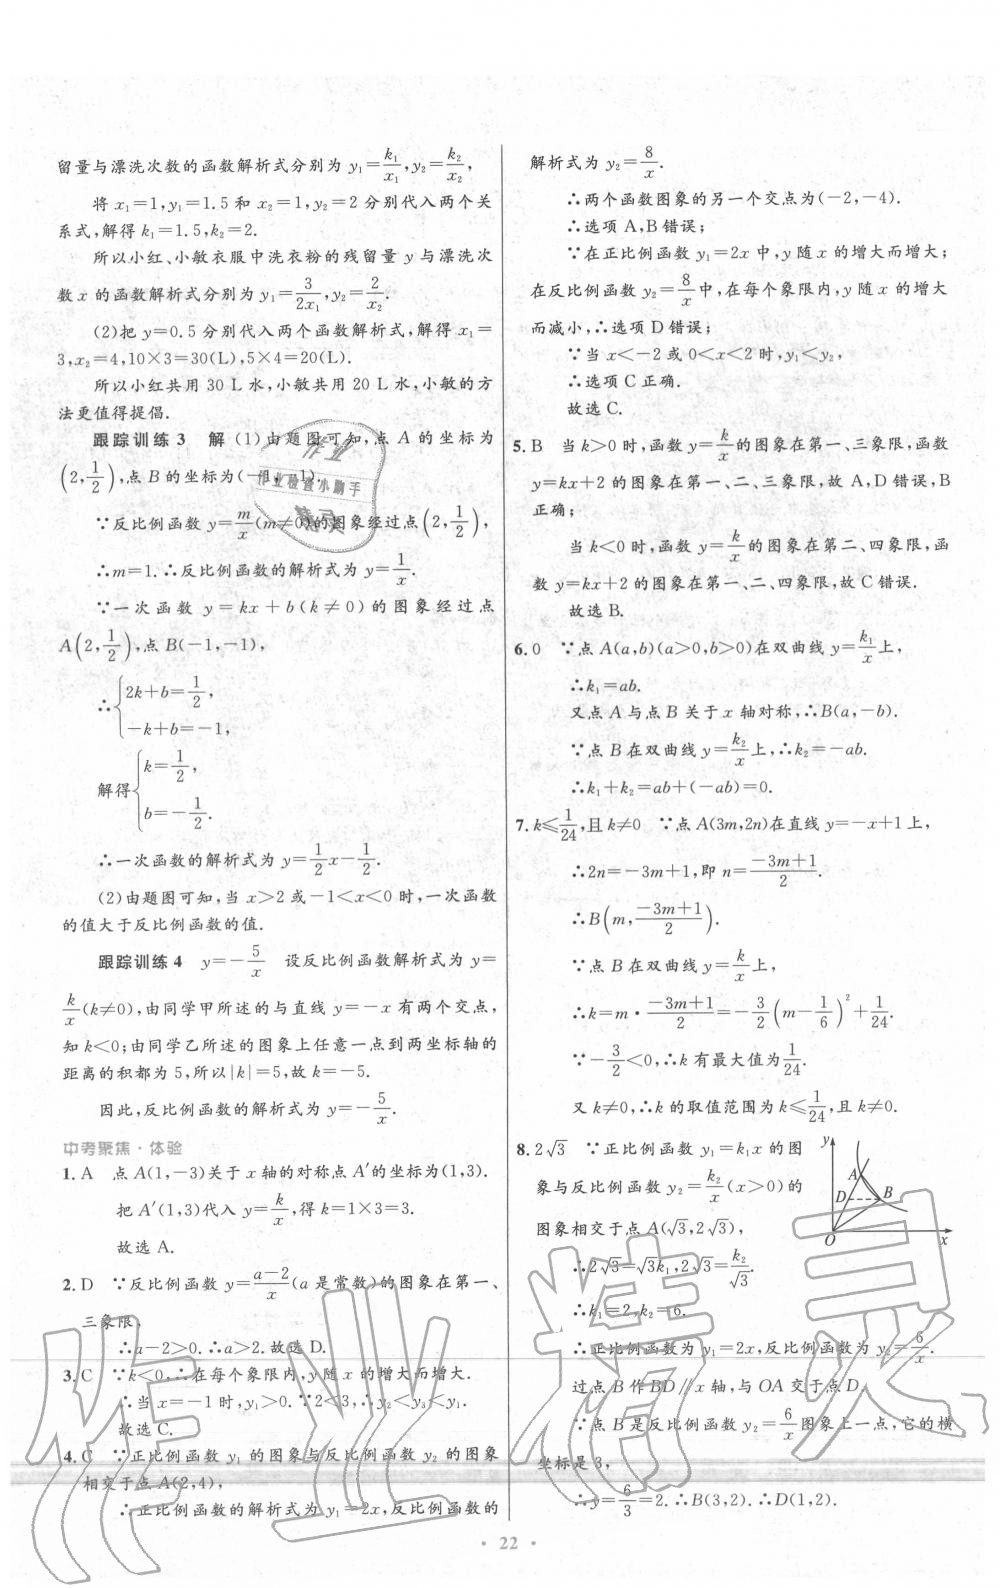 留量与漂洗次数的函数解析式分别为 y₁=k₁/x₁,y₂=k₂/x₂,
将 x₁=1,y₁=1.5 和 x₂=1,y₂=2 分别代入两个关
系式,解得 k₁=1.5,k₂=2.
所以小红、小敏衣服中洗衣粉的残留量 y 与漂洗次
数 x 的函数解析式分别为 y₁=3/2x₁,y₂=2/x₂.
(2)把 y=0.5 分别代入两个函数解析式,解得 x₁=
3,x₂=4,10×3=30(L),5×4=20(L).
所以小红共用 30 L 水,小敏共用 20 L 水,小敏的方
法更值得提倡.
跟踪训练 3 解 (1)由题图可知,点 A 的坐标为
(2,1/2),点 B 的坐标为(-1,-1).
∵反比例函数 y=m/x(m≠0)的图象经过点(2,1/2),
∴m=1.∴反比例函数的解析式为 y=1/x.
∵一次函数 y=kx+b(k≠0)的图象经过点
A(2,1/2),点 B(-1,-1),
∴{2k+b=1/2,
-k+b=-1,
解得{k=1/2,
b=-1/2.
∴一次函数的解析式为 y=1/2x-1/2.
(2)由题图可知,当 x>2 或-1<x<0 时,一次函数
的值大于反比例函数的值.
跟踪训练 4 y=-5/x 设反比例函数解析式为 y=
k/x(k≠0),由同学甲所述的与直线 y=-x 有两个交点,
知 k<0;由同学乙所述的图象上任意一点到两坐标轴的
距离的积都为 5,所以|k|=5,故 k=-5.
因此,反比例函数的解析式为 y=-5/x.
中考聚焦·体验
1. A 点 A(1,-3)关于 x 轴的对称点 A′的坐标为(1,3).
把 A′(1,3)代入 y=k/x,得 k=1×3=3.
故选 A.
2. D ∵反比例函数 y=a-2/x(a 是常数)的图象在第一、
三象限,
∴a-2>0.∴a>2.故选 D.
3. C ∵k<0,∴在每个象限内,y 随 x 的增大而增大.
∴当 x=-1 时,y₁>0.∵2<3,∴y₂<y₃<y₁.
故选 C.
4. C ∵正比例函数 y₁ 的图象与反比例函数 y₂ 的图象
相交于点 A(2,4),
∴正比例函数的解析式为 y₁=2x,反比例函数的
解析式为 y₂=8/x.
∴两个函数图象的另一个交点为(-2,-4).
∴选项 A,B 错误;
∵在正比例函数 y₁=2x 中,y 随 x 的增大而增大;
在反比例函数 y₂=8/x中,在每个象限内,y 随 x 的增大
而减小,∴选项 D 错误;
∵当 x<-2 或 0<x<2 时,y₁<y₂,
∴选项 C 正确.
故选 C.
5. B 当 k>0 时,函数 y=k/x的图象在第一、三象限,函数
y=kx+2 的图象在第一、二、三象限,故 A,D 错误,B
正确;
当 k<0 时,函数 y=k/x的图象在第二、四象限,函
数 y=kx+2 的图象在第一、二、四象限,故 C 错误.
故选 B.
6. 0 ∵点 A(a,b)(a>0,b>0)在双曲线 y=k₁/x上,
∴k₁=ab.
又点 A 与点 B 关于 x 轴对称,∴B(a,-b).
∵点 B 在双曲线 y=k₂/x上,∴k₂=-ab.
∴k₁+k₂=ab+(-ab)=0.
7. k≤1/24,且 k≠0 ∵点 A(3m,2n)在直线 y=-x+1 上,
∴2n=-3m+1,即 n=-3m+1/2.
∴B(m,-3m+1/2).
∵点 B 在双曲线 y=k/x上,
∴k=m·-3m+1/2=-3/2(m-1/6)²+1/24.
∵-3/2<0,∴k 有最大值为1/24.
又 k≠0,∴k 的取值范围为 k≤1/24,且 k≠0.
8. 2√3 ∵正比例函数 y₁=k₁x 的图
象与反比例函数 y₂=k₂/x(x>0)的
图象相交于点 A(√3,2√3),
∴2√3=√3k₁,2√3=k₂/√3.
∴k₁=2,k₂=6.
∴正比例函数为 y₁=2x,反比例函数为 y₂=6/x.
过点 B 作 BD∥x 轴,与 OA 交于点 D.
∵点 B 是反比例函数 y₂=6/x图象上一点,它的横
坐标是 3,
∴y=6/3=2.∴B(3,2).∴D(1,2).
y
A
D
B
O
x
作业
作业检查小助手
精灵
作业精灵
· 22 ·